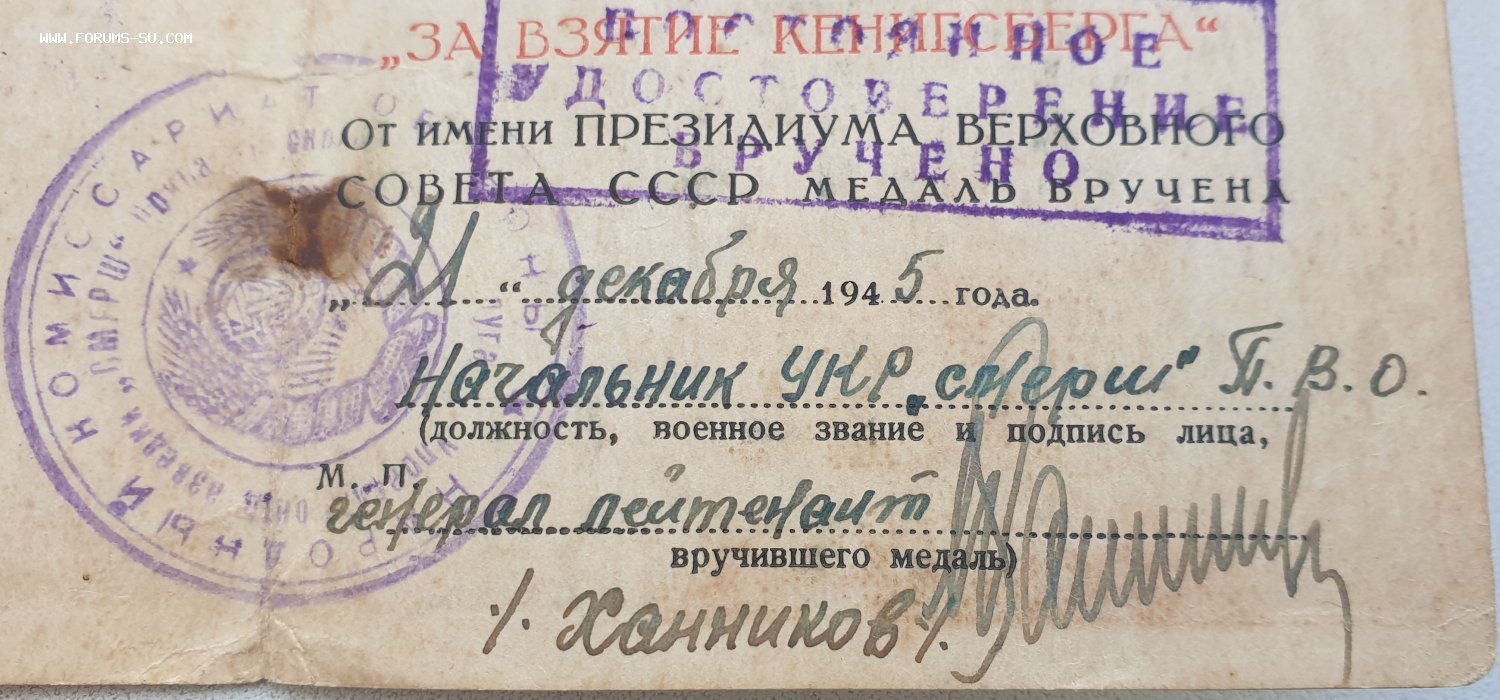 WWW.FORUMS-SU.COM
„ЗА ВЗЯТИЕ КЕНИГСБЕРГА“
ПОСТОЯННОЕ
УДОСТОВЕРЕНИЕ
ВРУЧЕНО
От имени ПРЕЗИДИУМА ВЕРХОВНОГО
СОВЕТА СССР МЕДАЛЬ ВРУЧЕНА
„21“ декабря 1945 года.
Начальник УКР „Смерш“ П.В.О.
(должность, военное звание и подпись лица,
М. П.
генерал лейтенант
вручившего медаль)
/. Ханников ./
НАРОДНЫЙ КОМИССАРИАТ ОБОРОНЫ